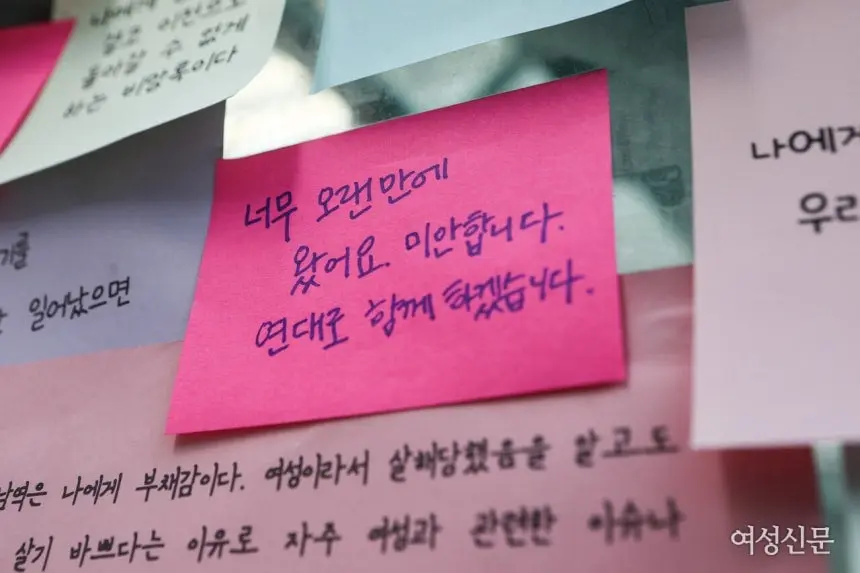 알고 이전으로
돌아갈 수 없게
하는 비망록이다
너무 오랜만에
왔어요. 미안합니다.
연대로 함께 하겠습니다.
일어났으면
나에게
우리
남역은 나에게 부채감이다. 여성이라서 살해당했음을 알고도
살기 바쁘다는 이유로 자주 여성과 관련한 이슈나
여성신문